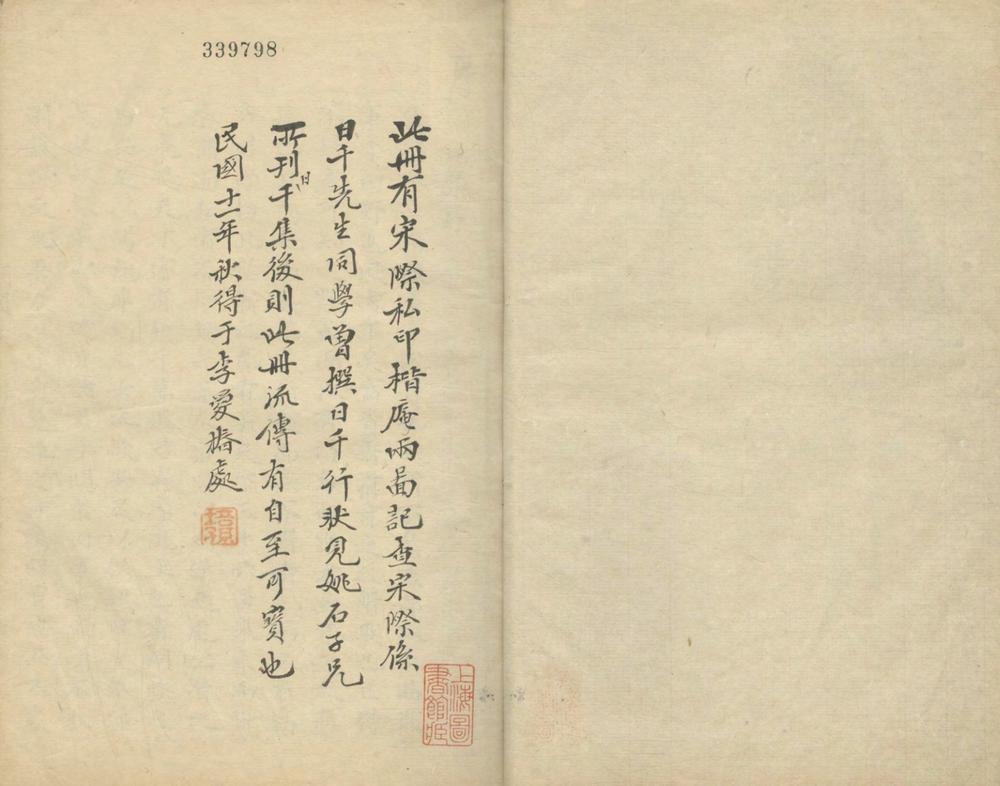 339798
此冊有宋際私印楷庵兩圖記查宋際係
日千先生同學曾撰日千行狀見姚石子兄
所刊日千集後則此冊流傳有自至可寶也
民國十一年秋得于李愛椿處
上海圖
書館藏